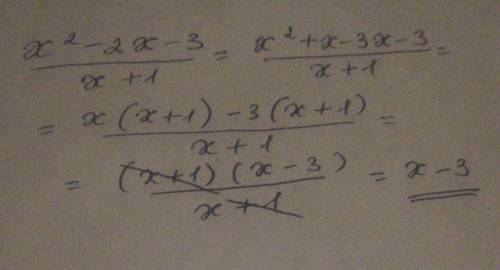 (x² - 2x - 3)/(x + 1) = (x² + x - 3x - 3)/(x + 1) =
= (x(x + 1) - 3(x + 1))/(x + 1) =
= ((x + 1)(x - 3))/(x + 1) = x - 3